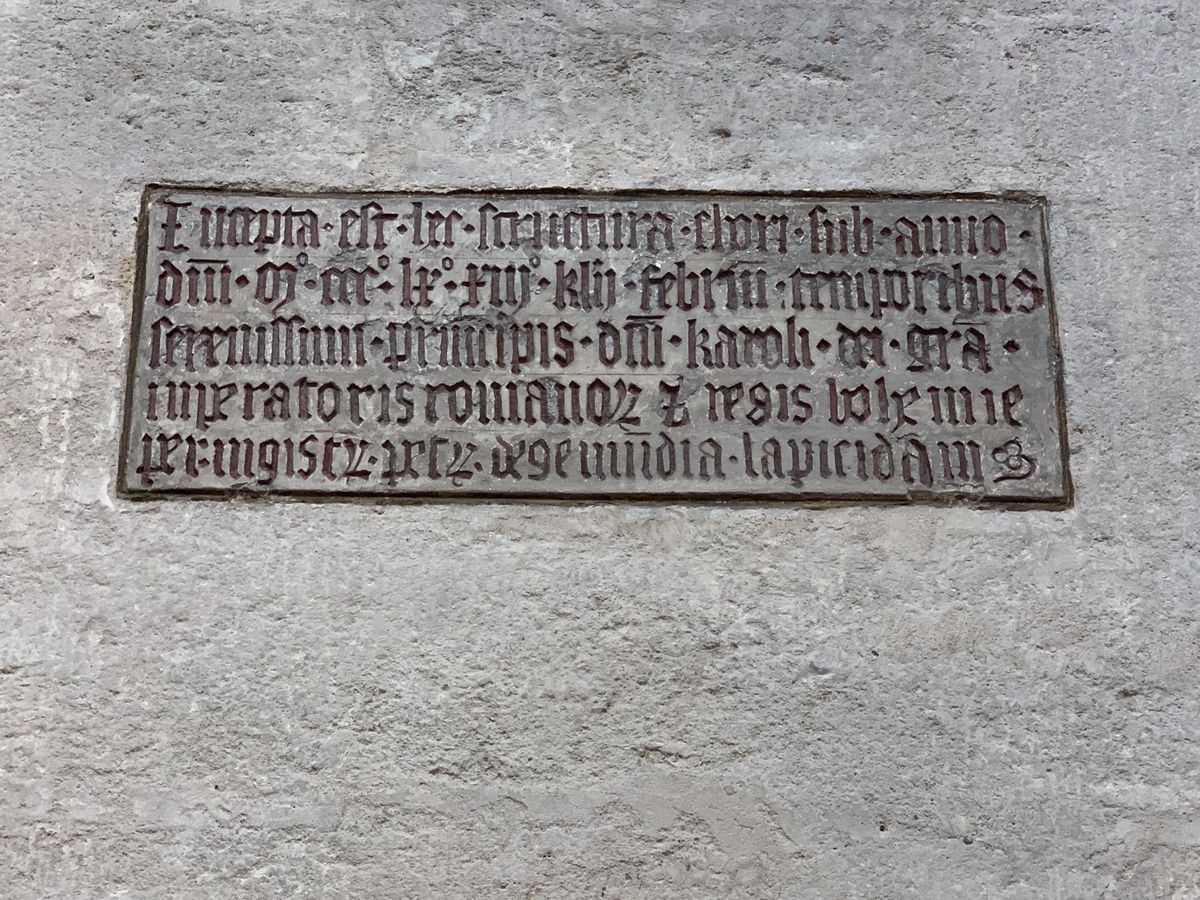 Incepta · est · hec · structura · chori · sub · anno ·
dn̄i · mº · cccº · lxº · xiiijº · klīj · februārij · temporibus
serenissimi · principis · dn̄i · karoli · dei · grā ·
imperatoris romanoꝝ ⁊ regis bohemie
per · magistꝝ · petꝝ · de gemūndia · lapicidam